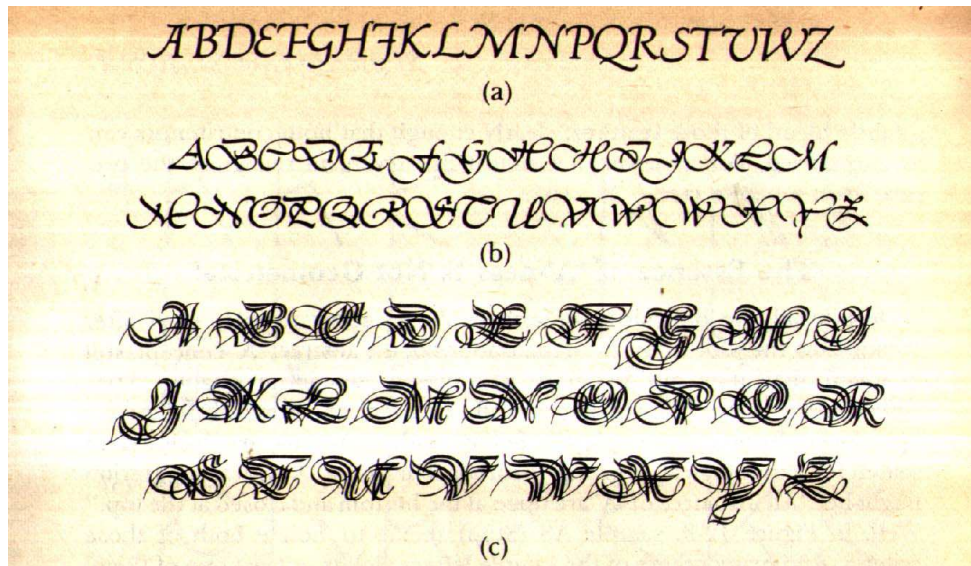 ABDEFGHJKLMNPQRSTUWZ
(a)
ABCDEFGHHIJKLM
MNOPQRSTUVWWXYZ
(b)
ABCDEFGHI
JKLMNOPQR
STUVWXYZ
(c)